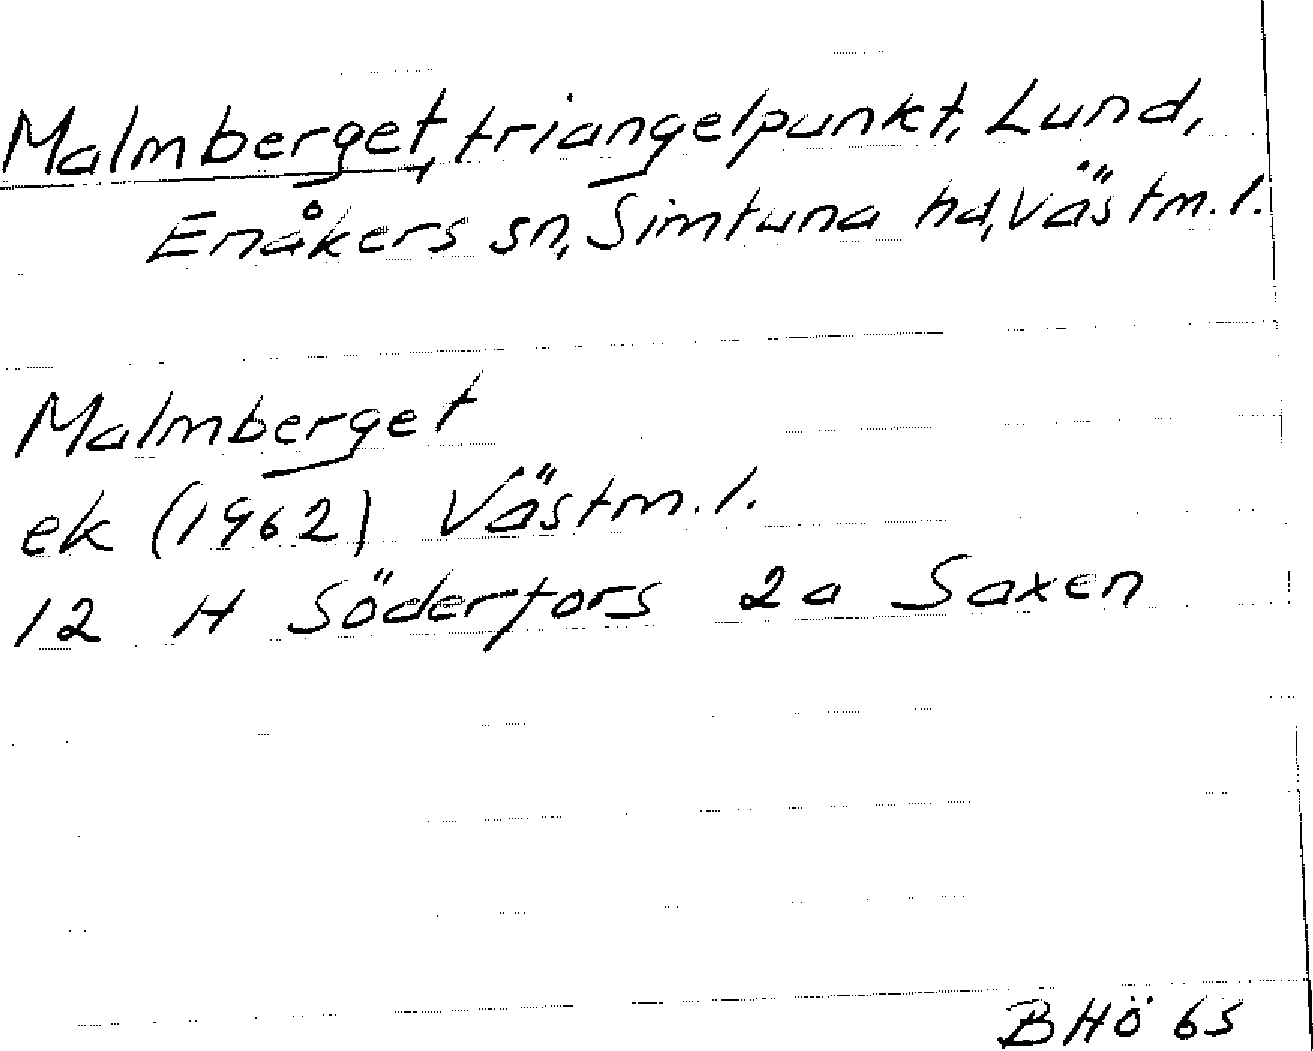 Malmberget, triangelpunkt, Lund,
Enåkers sn, Simtuna hd, Västm. l.
Malmberget
ek (1962) Västm. l.
12 H Söderfors 2a Saxen
BHö 65